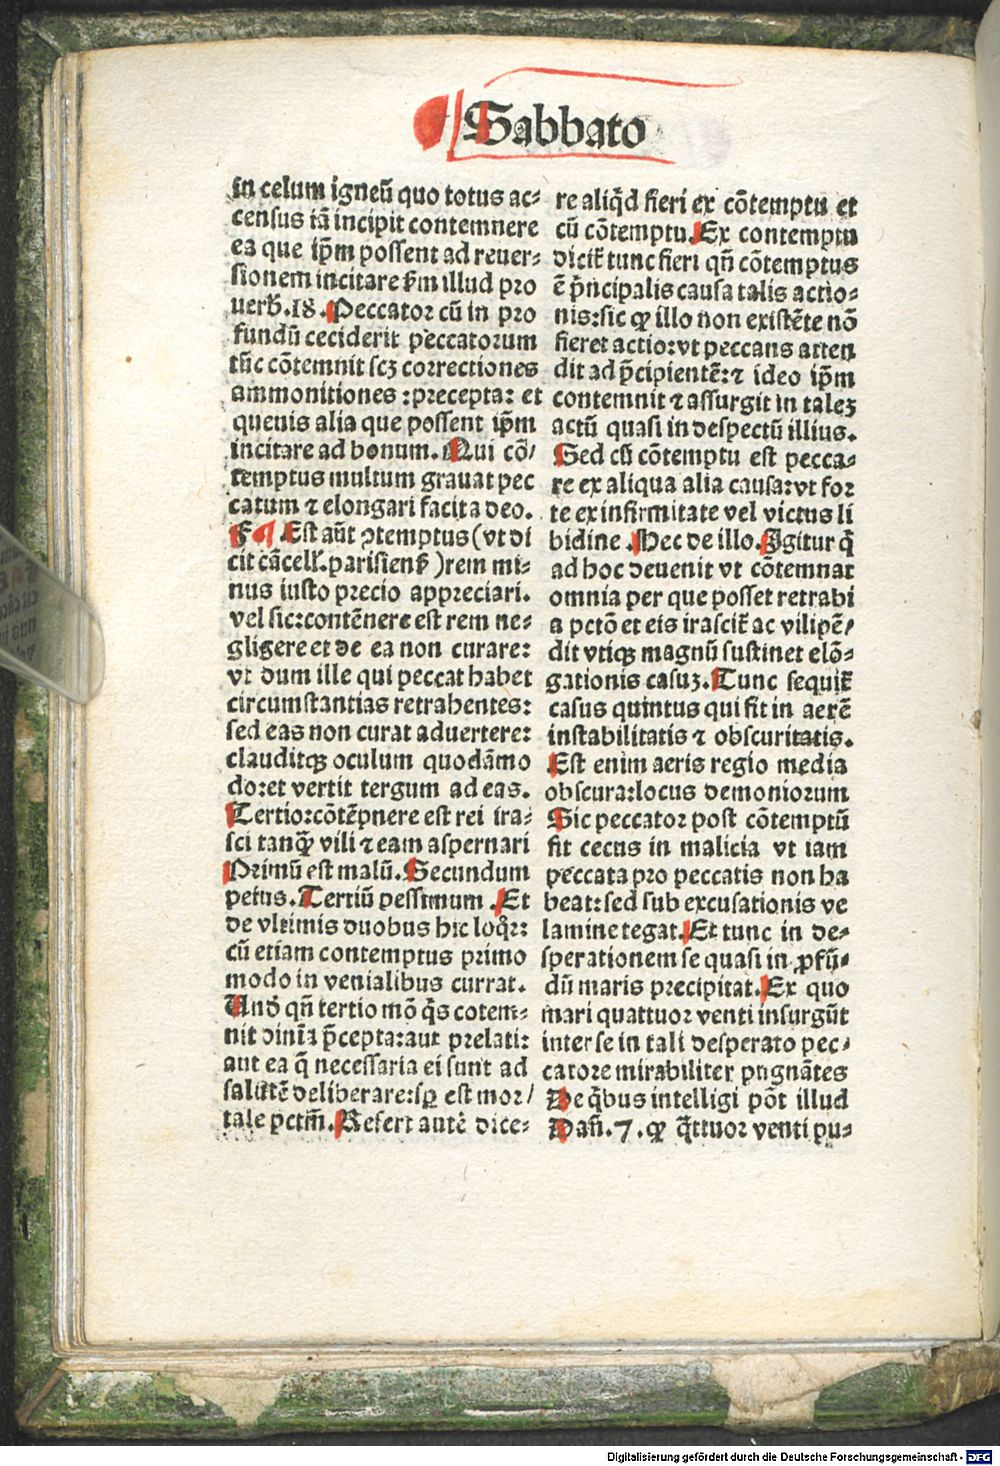 Sabbato
in celum igneū quo totus ac-
census iā incipit contemnere
ea que ip̄m possent ad reuer-
sionem incitare fm illud pro
uerb̄.18. Peccator cū in pro
fundū ceciderit peccatorum
tūc cōtemnit scꝫ correctiones
ammonitiones :precepta: et
queuis alia que possent ip̄m
incitare ad bonum. Qui cō/
temptus multum grauat pec
catum ⁊ elongari facit a deo.
F ¶ Est aūt ꝯtemptus (vt di
cit cācell'. parisieñ )rem mi-
nus iusto precio appreciari.
vel sic:contēnere est rem ne-
gligere et de ea non curare:
vt dum ille qui peccat habet
circumstantias retrahentes:
sed eas non curat aduertere:
clauditqꝫ oculum quodāmo
do:et vertit tergum ad eas.
Tertio:cōtēpnere est rei ira-
sci tanꝙ̄ vili ⁊ eam aspernari
Primū est malū. Secundum
peius. Tertiū pessimum .Et
de vltimis duobus hic loqr̄:
cū etiam contemptus primo
modo in venialibus currat.
Und̄ qñ tertio mō q̄s cotem-
nit diuīa p̄cepta:aut prelati:
aut ea q̄ necessaria ei sunt ad
salutē deliberare:sꝑ est mor/
tale pctm̄. Refert autē dice-
re aliq̄d fieri ex cōtemptu et
cū cōtemptu. Ex contemptu
dicit̄ tunc fieri qñ cōtemptus
ē p̄ncipalis causa talis actio-
nis:sic ꝙ illo non existēte nō
fieret actio:vt peccans atten
dit ad p̄cipientē:⁊ ideo ip̄m
contemnit ⁊ assurgit in taleꝫ
actū quasi in despectū illius.
Sed cū cōtemptu est pecca-
re ex aliqua alia causa:vt for
te ex infirmitate vel victus li
bidine .Hec de illo. Igitur q̄
ad hoc deuenit vt cōtemnat
omnia per que posset retrahi
a pctō et eis irascit̄ ac vilipē/
dit vtiqꝫ magnū sustinet elō-
gationis casuꝫ. Tunc sequit̄
casus quintus qui fit in aerē
instabilitatis ⁊ obscuritatis.
Est enim aeris regio media
obscura:locus demoniorum
Sic peccator post cōtemptū
fit cecus in malicia vt iam
peccata pro peccatis non ha
beat:sed sub excusationis ve
lamine tegat. Et tunc in de-
sperationem se quasi in ꝓfū-
dū maris precipitat. Ex quo
mari quattuor venti insurgūt
inter se in tali desperato pec-
catore mirabiliter pugnātes
De q̄bus intelligi pōt illud
Dañ.7. ꝙ q̄ttuor venti pu-
Digitalisierung gefördert durch die Deutsche Forschungsgemeinschaft - DFG